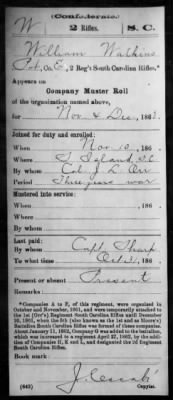 (Confederate.)
W 2 Rifles. S. C.
William Watkins
Pvt, Co. E, 2 Reg't South Carolina Rifles.*
Appears on
Company Muster Roll
of the organization named above,
for Nov & Dec, 186
Joined for duty and enrolled:
When Nov 10, 186
Where S. Island S.C.
By whom Col. J. L. Orr
Period Three years war
Mustered into service:
When , 186 .
Where
By whom
Last paid:
By whom Capt. Sharp
To what time Oct 31, 186
Present or absent Present
Remarks:
*Companies A to F, of this regiment, were organized in
October and November, 1861, and were temporarily attached
to the 1st (Orr's) Regiment South Carolina Rifles until December
Battalion South Carolina Rifles was formed of these companies.
About January 11, 1862, Company G was added to the battalion,
which was increased to a regiment April 27, 1862, by the addition
of Companies H, I and K, and designated the 2d Regiment
South Carolina Rifles.
Book mark:
(642)
Copyist.